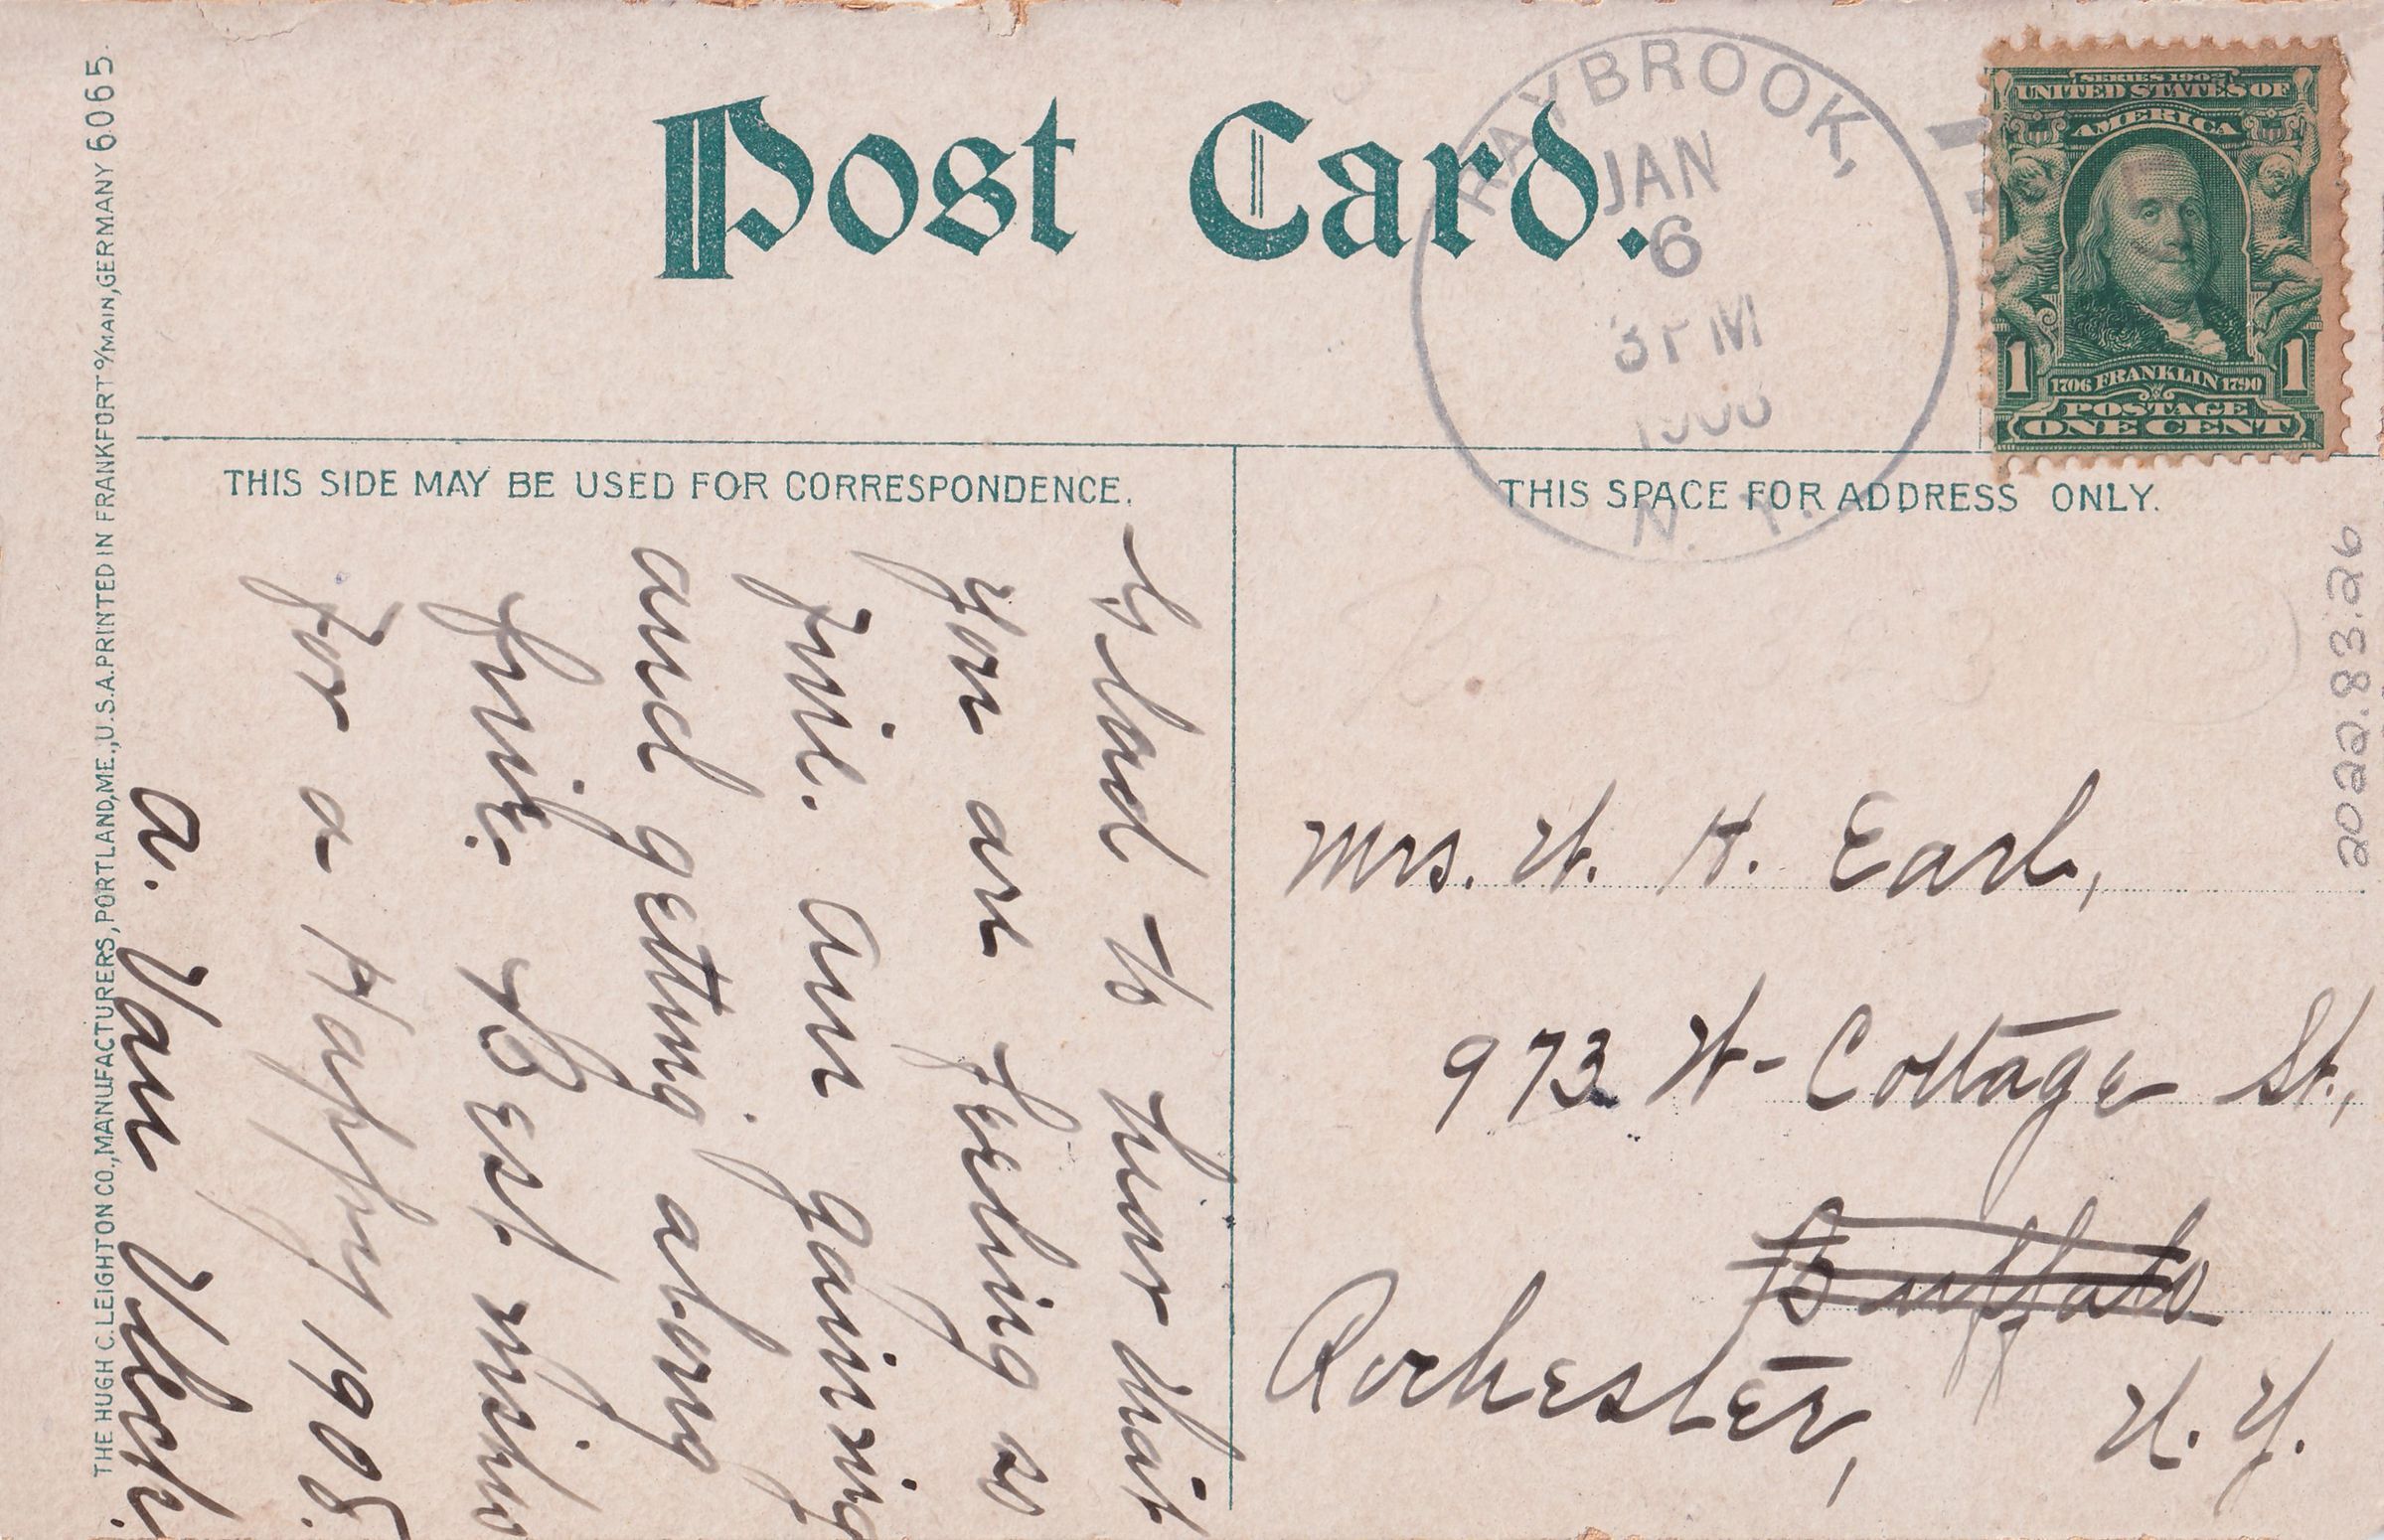 Post Card.
RAYBROOK,
JAN
6
3 PM
N. Y.
SERIES 1902
UNITED STATES OF
AMERICA
1 1706 FRANKLIN 1790 1
POSTAGE
ONE CENT
THIS SIDE MAY BE USED FOR CORRESPONDENCE.
Glad to hear that
you are feeling so
fine. Am gaining
and getting along
fine. Best wishes
for a Happy 1908.
A. Van Vleck.
THIS SPACE FOR ADDRESS ONLY.
Mrs. W. H. Earl,
973 W- Cottage St.,
Buffalo
Rochester, N. Y.
2022.83.26
THE HUGH C. LEIGHTON CO., MANUFACTURERS, PORTLAND, ME., U.S.A. PRINTED IN FRANKFORT o/MAIN, GERMANY 6065.